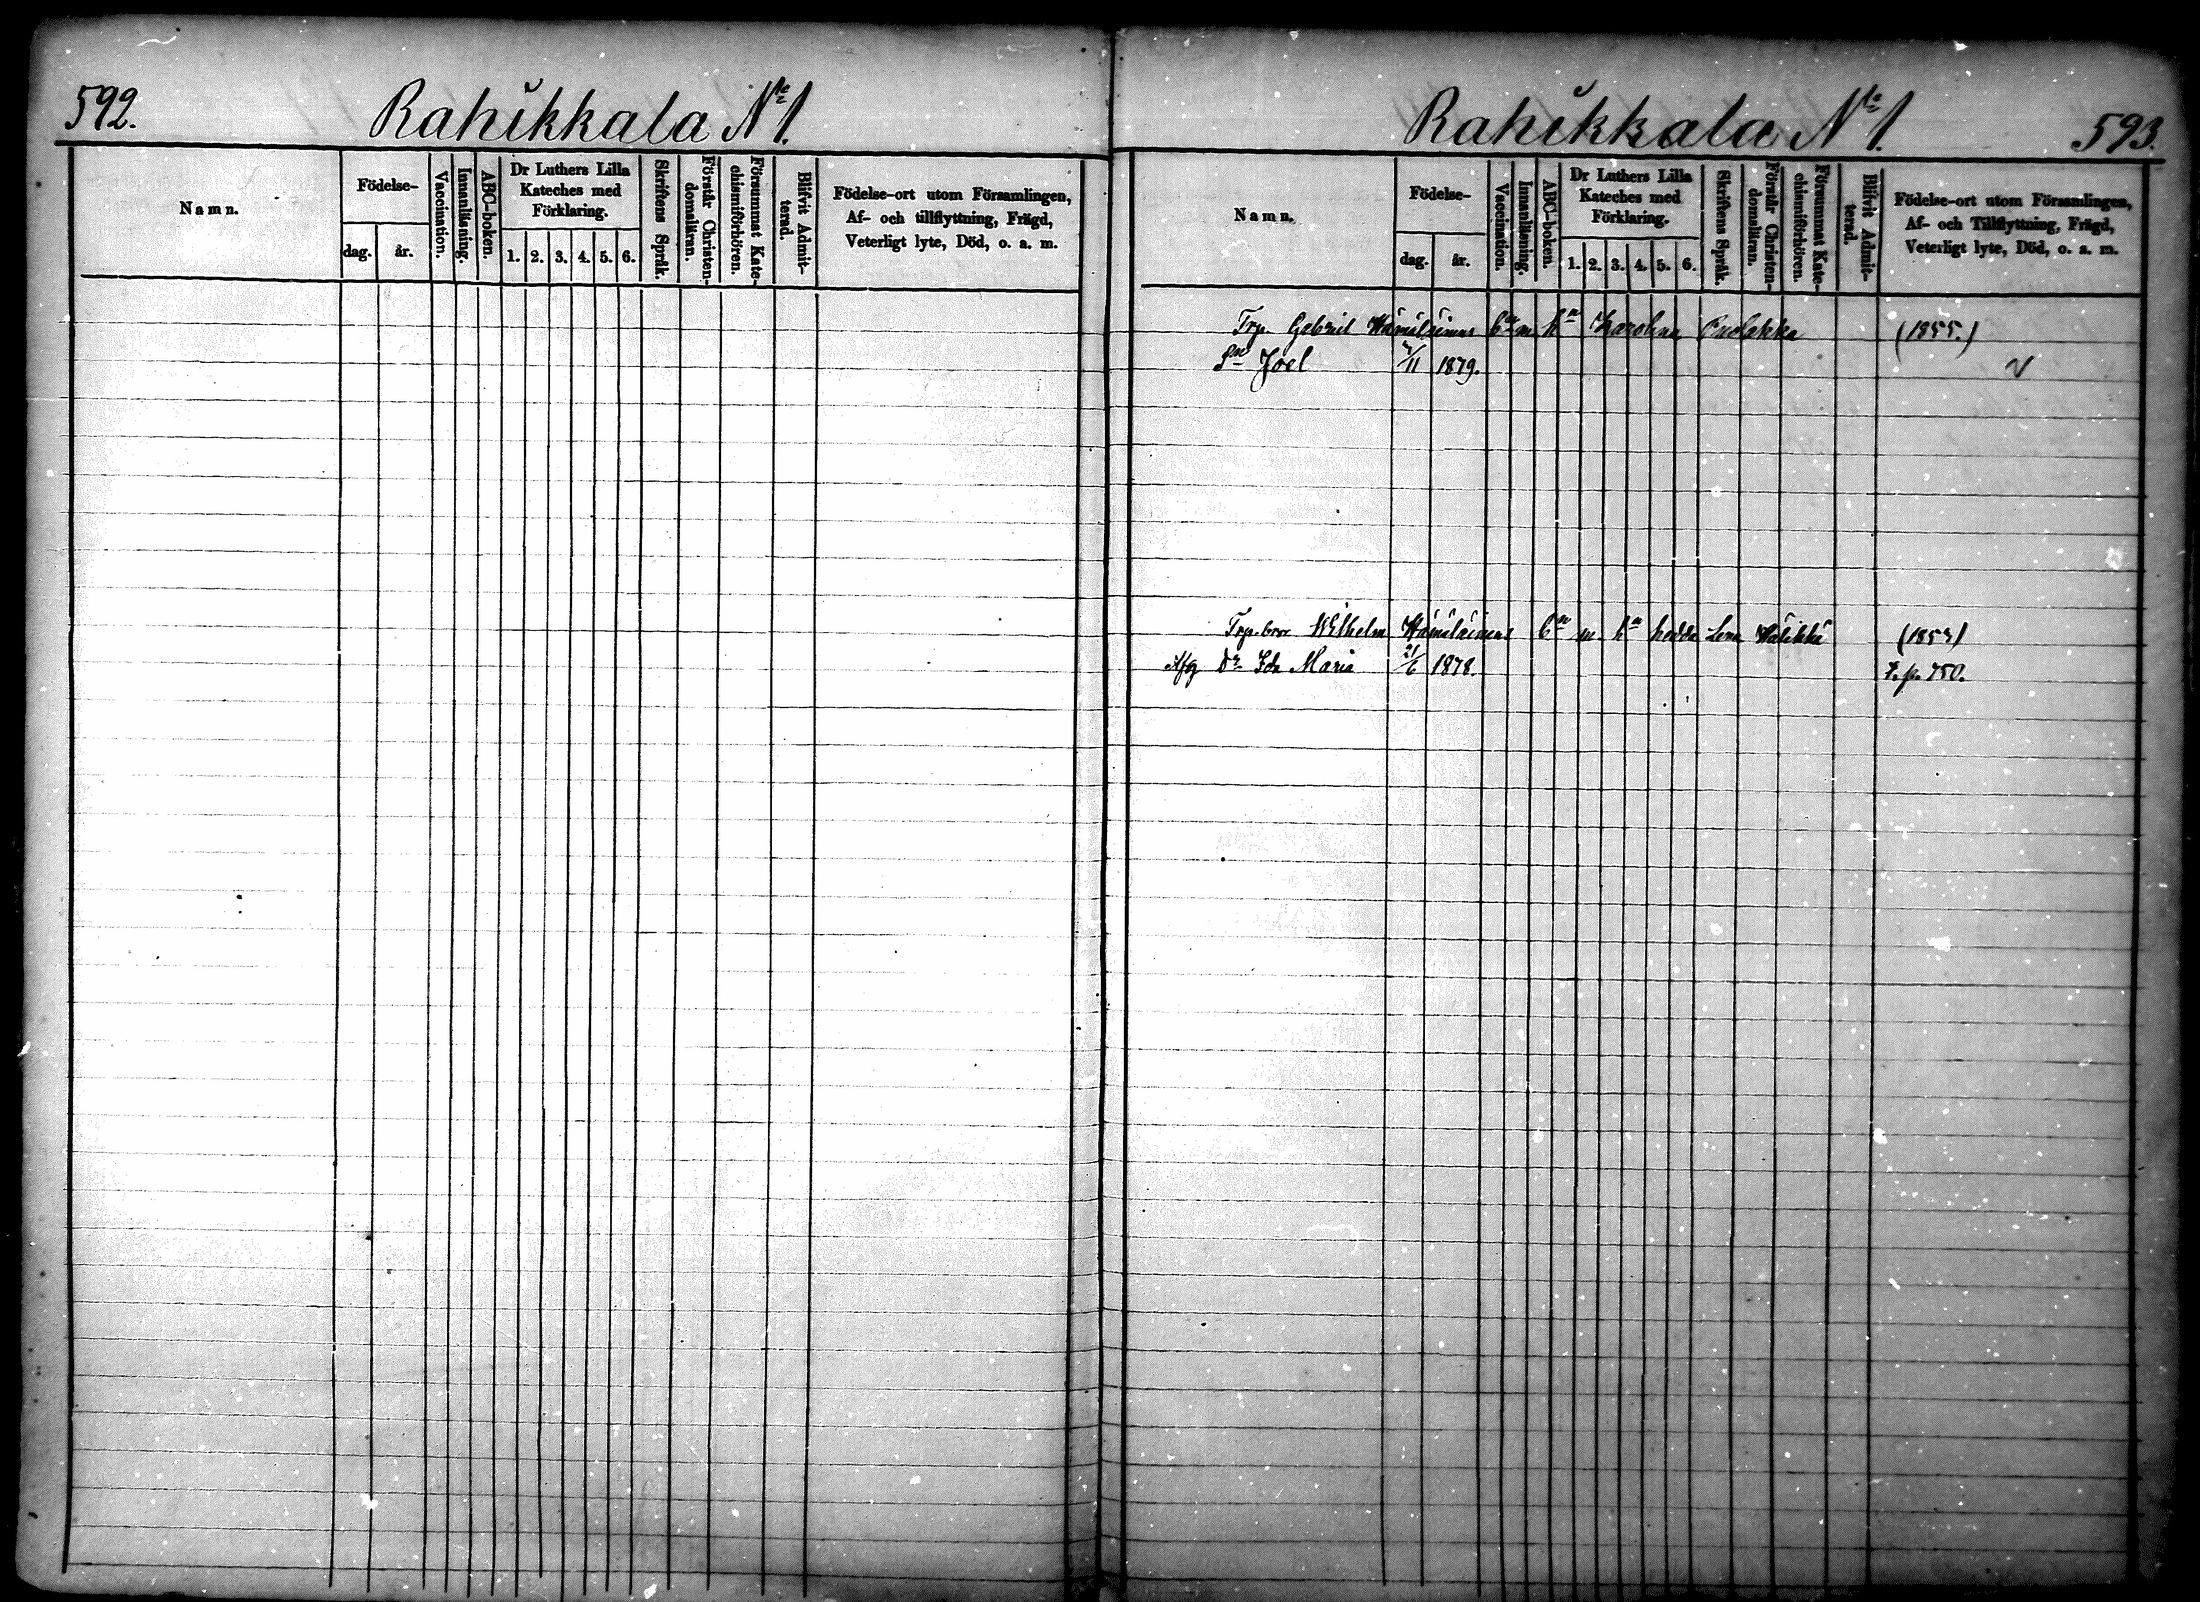 592. Rahikkala № 1.
Namn.
Födelse-
dag. år.
Vaccination.
Innanläsning.
ABC-boken.
Dr Luthers Lilla
Kateches med
Förklaring.
1. 2. 3. 4. 5. 6.
Skriftens Språk.
Förstår Christen-
domsläran.
Försummat Kate-
chismiförhören.
Blifvit Admit-
terad.
Födelse-ort utom Församlingen,
Af- och tillflyttning, Frägd,
Veterligt lyte, Död, o. a. m.
Rahikkala № 1. 593.
Namn.
Födelse-
dag. år.
Vaccination.
Innanläsning.
ABC-boken.
Dr Luthers Lilla
Kateches med
Förklaring.
1. 2. 3. 4. 5. 6.
Skriftens Språk.
Förstår Christen-
domsläran.
Försummat Kate-
chismiförhören.
Blifvit Admit-
terad.
Födelse-ort utom Församlingen,
Af- och Tillflyttning, Frägd,
Veterligt lyte, Död, o. a. m.
Trp. Gabriel Hämäläinens m. Karolina (1855.)
Sn Joel /11 1879.
Trp. bror Wilhelm Hämäläinens m. Hedda Lena
Afg Dr Ida Maria 21/6 1878. t. p. 750.